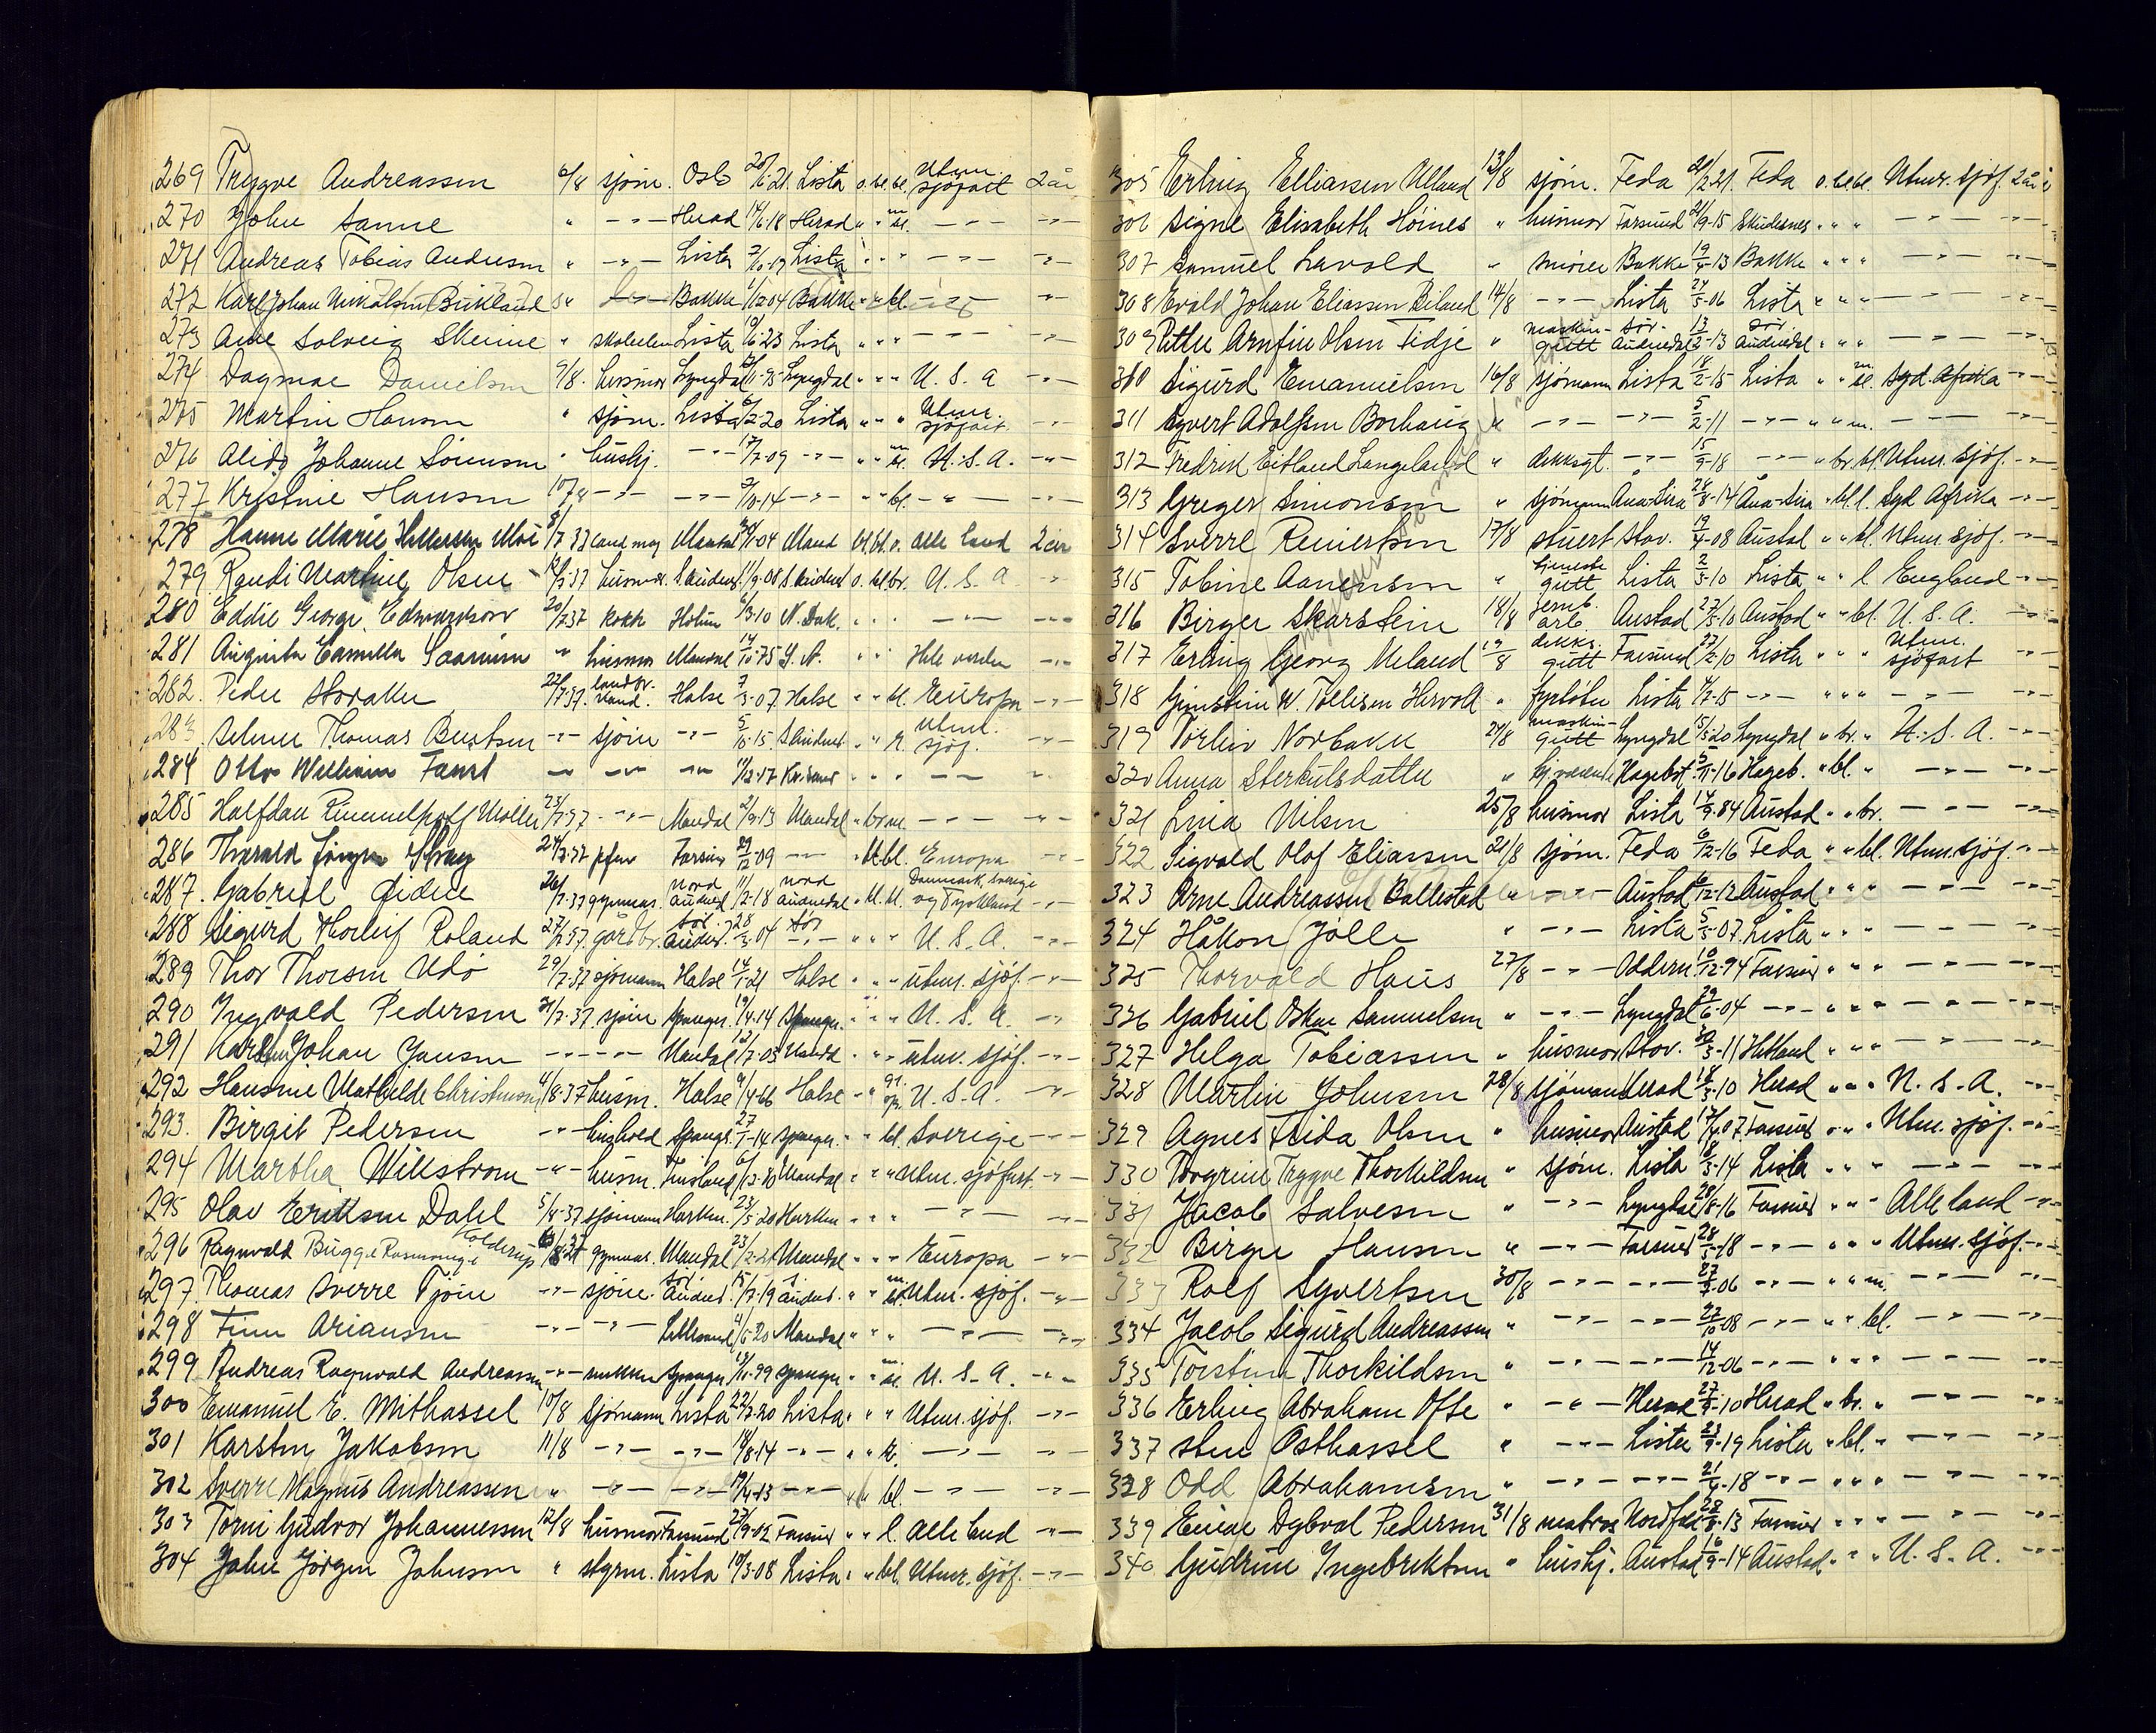 269 Trygve Andreassen 6/8 sjöm. Oslo 20/6-21 Lista o. bl. bl. Utenr. sjöfart 2 år
270 John Sanne " -"- Herad 14/6-18 Herad " " m. bl. -"- -"-
271 Andreas Tobias Andersen " -"- Lista Lista " " " -"- -"-
272 Karl Johan Nikolaisen Birkeland " -"- Bakke 1/12-04 Bakke " " bl. -"- -"-
273 Ane Solveig Skeime " Lista 6-23 Lista " " " -"- -"-
274 Dagmar Danielsen 9/8. husmor Lyngdal 11-95 Lyngdal " " " U.S.A -"-
275 Martin Hansen " sjöm. Lista 6/2-20 Lista " " " Utenr. sjöfart -"-
276 Alida Johanne Sörensen " hushj. -"- 17/7-09 -"- " " m. bl. U.S.A. -"-
277 Kristine Hansen 10/8 -"- -"- 2/10-14 -"- " " bl. -"- -"-
278 Hanne Marie Moi 8/7 37 Mandal 30/1-04 Mand bl. bl. o. alle land 2 år
279 Randi Martine Olsen 12/7-37 husmor 11/9-08 o. bl. br. U.S.A -"-
280 Eddie George Edwardson 20/7 37 kokk Holum 6/3-10 N. Dak. " " " -"- -"-
281 Camilla " husmor Mandal 14/10-75 " " " Hele verden -"-
282. Peder Storaker 22/7-37. landbr. kand. Halse 7/3-07 Halse " " bl. Europa -"-
283. Thomas Bentsen -"- sjöm -"- 5/10-15 " " " Utenl. sjöf. -"-
284 Otto William -"- -"- -"- 11/2-17 " " " -"- "
285 Halfdan 23/7-37 -"- Mandal 2/9-13 Mandal " br. m. -"- -"-
286 24/7-37 29/12-09 -"- " bl. bl. Europa -"-
287. Gabriel 26/7-37 gymnas. nord audned 11/2-18 nord audnedal " bl. bl. Danmark, Sverige og Tyskland -"-
288 Sigurd Thorleif Roland 27/7-37. gårdbr. sör audned. 28/3-04 sör -"- " " " U.S.A. -"-
289 Thor Thorsen Udö 29/7-37 sjömann Halse 14/1-21 Halse " " " utenr. sjöf. -"-
290 Ingvald Pedersen 31/7-37 sjöm Spanger. 19/4-14 Spanger. " " " U.S.A. -"-
291 Johan Jansen -"- -"- Mandal 7-05 Mandal " " " utenr. sjöf. -"-
292 Hansine Mathilde Christensen 4/8-37 husm. Halse 9/4-66 Halse " " gr. U.S.A. -"-
293. Birgit Pedersen -"- hushold Spangr. 27/1-14 Spanger. " " bl. Sverige -"-
294 Martha Wikstrøm -"- husm. Finsland Mandal " " " utenr. sjöfart. -"-
295 Olav Eriksen Dahl 5/8-37 sjömann Harkm. 24/5-20 Harkm " " " -"- -"-
296 Ragnvald Bugge Rasmussen Holderup gymnas. Mandal 23/2-21 Mandal " " " Europa -"-
297 Thomas Sverre Tjöm -"- sjöm. sör audned. 15/7-19 s. audned. " " m. bl. Utenr. sjöf. -"-
298 Finn Ariansen -"- -"- Lillesand 4/6-20 Mandal " " " -"- -"-
299 Andreas Ragnvald Andreassen -"- snekker Spanger. 13/10-99 Spanger " " m. bl. U.S.A. -"-
300 Emanuel E. Mithassel 10/8 sjömann Lista 22/7-20 Lista " " " Utenr. sjöf. -"-
301 Karsten Jakobsen 11/8 -"- -"- 18/8-14 -"- " " -"- -"-
302 Sverre Magnus Andreassen " -"- -"- 19/4-13 -"- " " bl. -"- -"-
303 Torni Gudvor Johannessen 12/8 husmor Farsund 27/9-02 Farsund " " l. Alle land -"-
304 John Jörgen Johnsen " styrm. Lista 10/3-08 Lista " " bl. Utenr. sjöf. -"-
305 Erling Elliassen Ulland 13/8 sjöm. Feda 21/2-21. Feda o. bl. bl. Utenr. sjöf. 2 år
306 Signe Elisabeth Höines " husmor Farsund 21/9-15 Skudesnes " " " -"- -"-
307 Samuel Lavold " smörer Bakke 19/4-13 Bakke " " " -"- -"-
308 Evald Johan Eliassen Biland 14/8 -"- Lista 24/5-06 Lista " " " -"- -"-
309 Petter Arnfin Olsen Tidje " maskin-gutt sör-audnedal 13/2-13 sör. audnedal " " " -"- -"-
310 Sigurd Emanuelsen 16/8 sjömann Lista 18/2-15 Lista " " m. bl. Syd. Afrika -"-
311 Syvert Adolfsen Borhaug " -"- -"- 5/2-11 -"- " " m. -"- -"-
312 Fredrik Eitland Langeland " dekksgt. -"- 15/9-18 -"- " br. bl. Utenr. sjöf. -"-
313 Greger Simonsen " sjömann Ana-Sira 28/8-14 Åna-Sira " bl. l. Syd Afrika -"-
314 Sverre Reinertsen 17/8 stuert Stav. 19/4-08 Austad " " bl. Utenr. sjöf. -"-
315 Tobine Aanensen " tjeneste gutt Lista 2/3-10 Lista " " l. England -"-
316 Birger Skarstein 18/8 jernb. arb. Austad 27/5-10 Austad " " bl. U.S.A. -"-
317 Erling Georg Meland 19/8 dekks. gutt Farsund 22/2-10 Lista " " " Utenr. sjöfart -"-
318 Gunstein W. Tollisen Hervold " fyrböter Lista 4/7-15 -"- " " " -"- -"-
319 Torleiv Norbakk 21/8 maskin-gutt Lyngdal 15/5-20 Lyngdal " br. " U.S.A. -"-
320 Anna Sterkulsdatter " Hagebst. 5/11-16 Hageb. " bl. " -"- -"-
321 Lina Nilsen 25/8 husmor Lista 14/9-84 Austad " " br. -"- -"-
322 Sigvald Olof Eliassen 21/8 sjöm. Feda 6/12-16 Feda " " bl. Utenr. sjöf. -"-
323 Arne Andreassen Ballestad " -"- Austad 6/12-12 Austad " " " -"- -"-
324 Håkon Jölle " -"- Lista 5/5-07. Lista " " " -"- -"-
325 Thorvald Haus 27/8 -"- Oddern. 10/12-94 Farsund " " " -"- -"-
326 Gabriel Oskar Samuelsen " -"- Lyngdal 29/6-04 -"- " " " -"- -"-
327 Helga Tobiassen " husmor Stav. 30/3-11 Hetland " " " -"- -"-
328 Martin Johnsen 28/8 sjömann Herad 18/3-10 Herad " " " U.S.A. -"-
329 Agnes Olsen " husmor Austad 17/4-07. Farsund " " " Utenr. sjöf. -"-
330 Torgrim Trygve Thorkildsen " sjöm. Lista 8/3-14 Lista " " " -"- -"-
331 Jacob Salvesen " -"- Lyngdal 20/8-16 Farsund " " " Alle land -"-
332 Birger Hansen " -"- Farsund 28/5-18 -"- " " " Utenr. sjöf. -"-
333 Rolf Syvertsen 30/8 -"- -"- 27/9-06 -"- " " m. -"- -"-
334 Jacob Sigurd Andreassen " -"- -"- 22/10-08 -"- " " bl. -"- -"-
335 Torstein Thorkildsen " -"- -"- 14/12-06 -"- " " " -"- -"-
336 Erling Abraham Ofte " -"- Herad 27/9-10 Herad " br. " -"- -"-
337 Sten Osthassel " -"- Lista 23/9-19 Lista " bl. " -"- -"-
328 Odd Abrahamsen " -"- -"- 21/4-18 -"- " " " -"- -"-
339 Einar Dybval Pedersen 31/8 matros 28/8-13 Farsund " " " -"- -"-
340 Gudrun Ingebriktsen " hushj. Austad 16/9-14 Austad " " " U.S.A. -"-